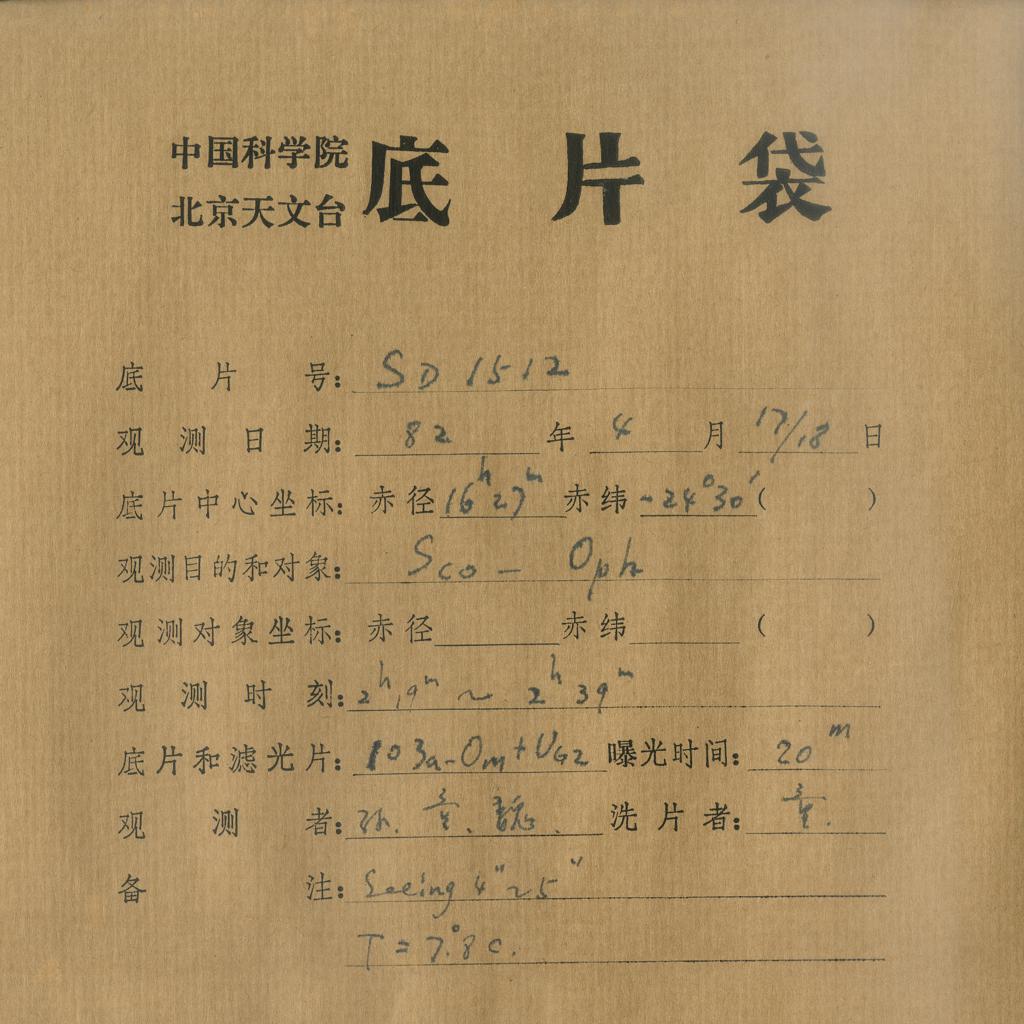 中国科学院
北京天文台
底片袋
底片号: SD 1512
观测日期: 82 年 4 月 17/18 日
底片中心坐标: 赤径 16h27m 赤纬 -24°30′ ( )
观测目的和对象: Sco - Oph
观测对象坐标: 赤径 赤纬 ( )
观测时刻: 2h19m ~ 2h39m
底片和滤光片: 103a-Om+UG2 曝光时间: 20m
观测者: 孙. 童. 魏. 洗片者: 童.
备注: Seeing 4″~5″
T = 7.°8 C.